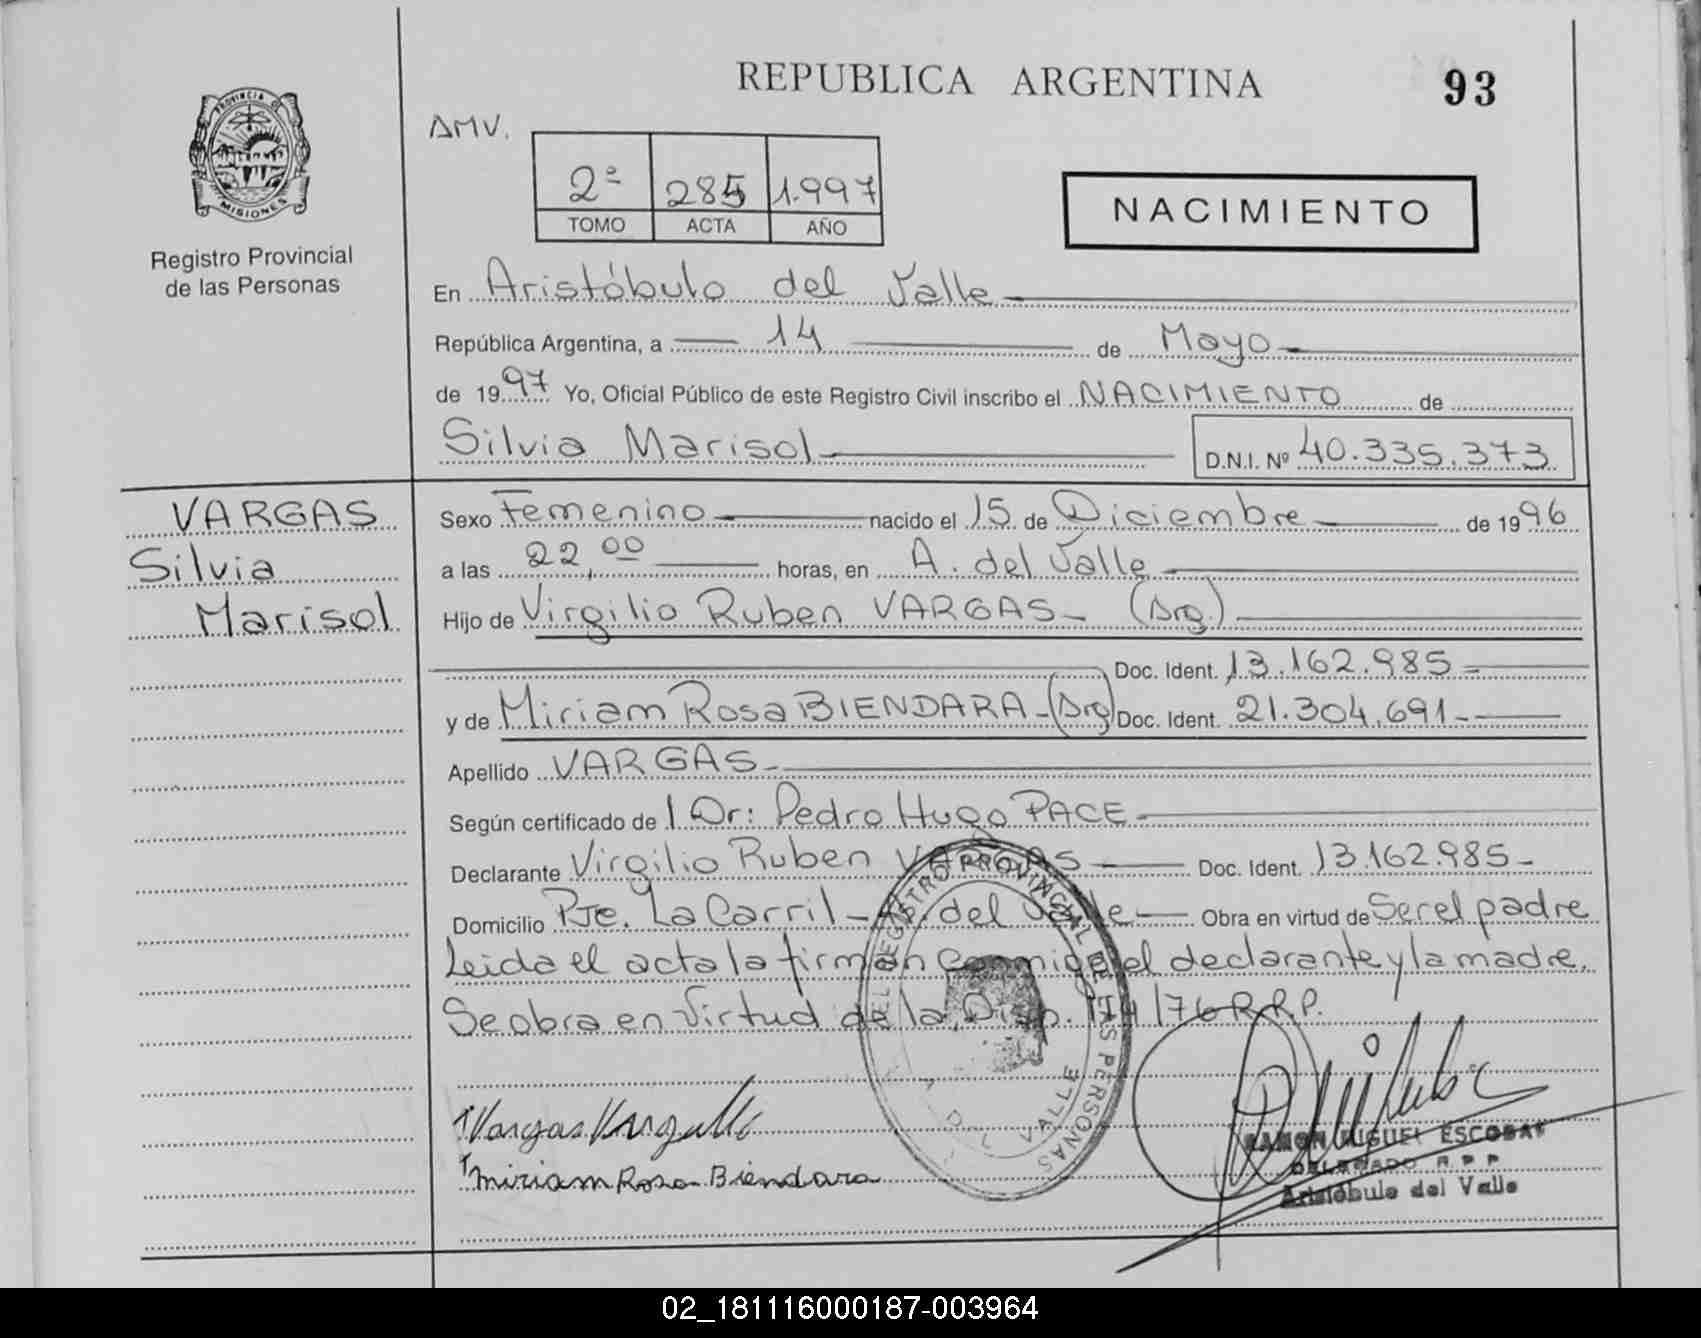 REPUBLICA ARGENTINA
93
PROVINCIA DE
MISIONES
Registro Provincial
de las Personas
AMV.
2º 285 1.997
TOMO ACTA AÑO
NACIMIENTO
En Aristóbulo del Valle
República Argentina, a 14 de Mayo
de 1997 Yo, Oficial Público de este Registro Civil inscribo el NACIMIENTO de
Silvia Marisol D.N.I. Nº 40.335.373
VARGAS
Silvia
Marisol
Sexo Femenino nacido el 15 de Diciembre de 1996
a las 22,00 horas, en A. del Valle
Hijo de Virgilio Ruben VARGAS - (Arg.)
Doc. Ident. 13.162.985 -
y de Miriam Rosa BIENDARA - (Arg) Doc. Ident. 21.304.691 -
Apellido VARGAS -
Según certificado de l Dr: Pedro Hugo PACE -
Declarante Virgilio Ruben VARGAS Doc. Ident. 13.162.985 -
Domicilio Pje. La Carril - A. del Valle Obra en virtud de Ser el padre
Leida el acta la firman conmigo el declarante y la madre.
Se obra en Virtud de la Disp. 174/76 R.R.P.
REGISTRO PROVINCIAL DE LAS PERSONAS
DEL VALLE
Vargas Virgilio
Miriam Rosa Biendara
RAMON MIGUEL ESCOBAR
DELEGADO R.P.P.
Aristóbulo del Valle
02_181116000187-003964